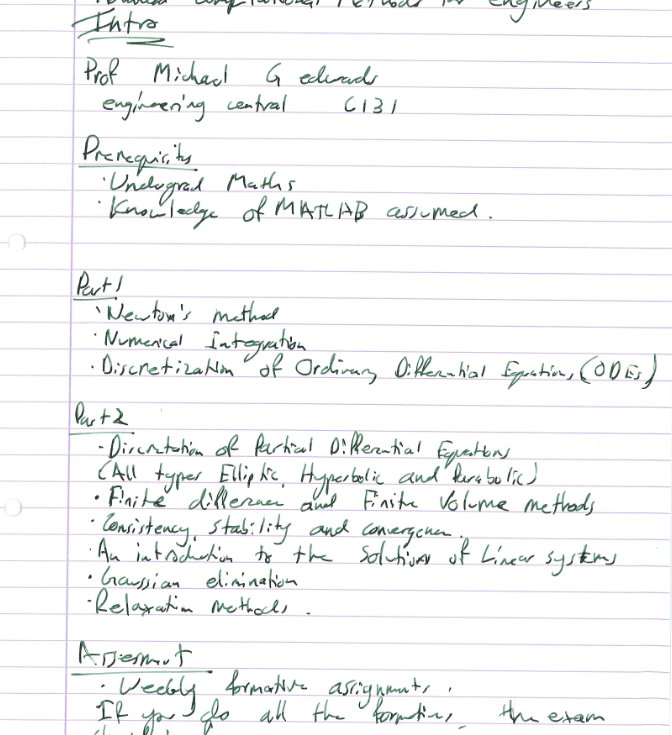 Computational Methods for engineers
Intro
Prof Michael G edwards
engineering central C131
Prerequisity
· Undergrad Maths
· Knowledge of MATLAB assumed.
Part 1
· Newton's method
· Numerical Integration
· Discretization of Ordinary Differential Equations (ODEs)
Part 2
· Discretation of Partial Differential Equations
(All types Elliptic, Hyperbolic and Parabolic)
· Finite difference and Finite Volume methods
· Consistency, stability and convergence.
· An introduction to the Solutions of Linear systems
· Gaussian elimination
· Relaxation methods.
Assesment
· Weekly formative assignments.
If you do all the formative, the exam